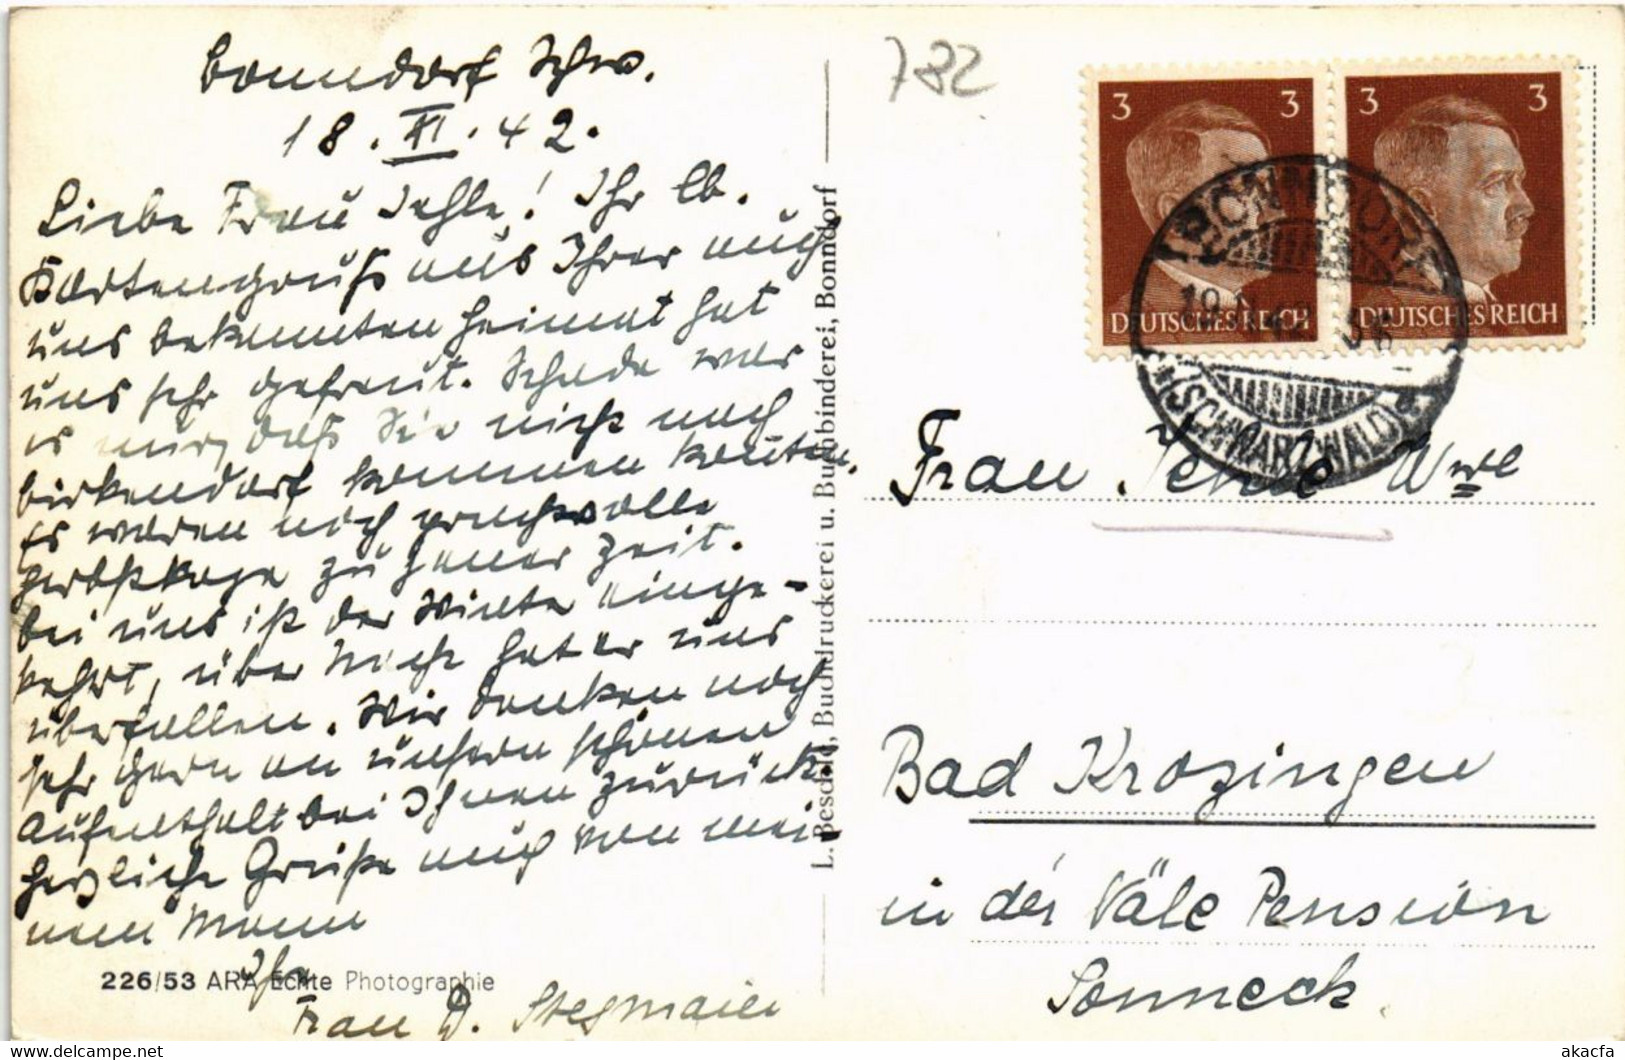 Bonndorf Schw.
18. XI. 42.
Liebe Frau Jehle! Ihr lb.
Kartengruß aus Ihrer auch
uns bekannten Heimat hat
uns sehr gefreut. Schade war
es nur, daß Sie nicht nach
Birkendorf kommen konnten.
Es waren noch prachtvolle
Herbsttage zu jener Zeit.
Bei uns ist der Winter einge-
kehrt, über Nacht hat er uns
überfallen. Wir denken noch
sehr gern an unsern schönen
Aufenthalt bei Ihnen zurück
Herzliche Grüße auch von mei-
nem Mann
Ihre
Frau D. Stegmaier
226/53 ARA Echte Photographie
L. Beschold, Buchdruckerei u. Buchbinderei, Bonndorf
782
3 3
DEUTSCHES REICH
3 3
DEUTSCHES REICH
BONNDORF
19.11.42
(SCHWARZWALD)
Frau Jehle Wwe
Bad Krozingen
in der Väle Pension
Sonneck.
akacfa